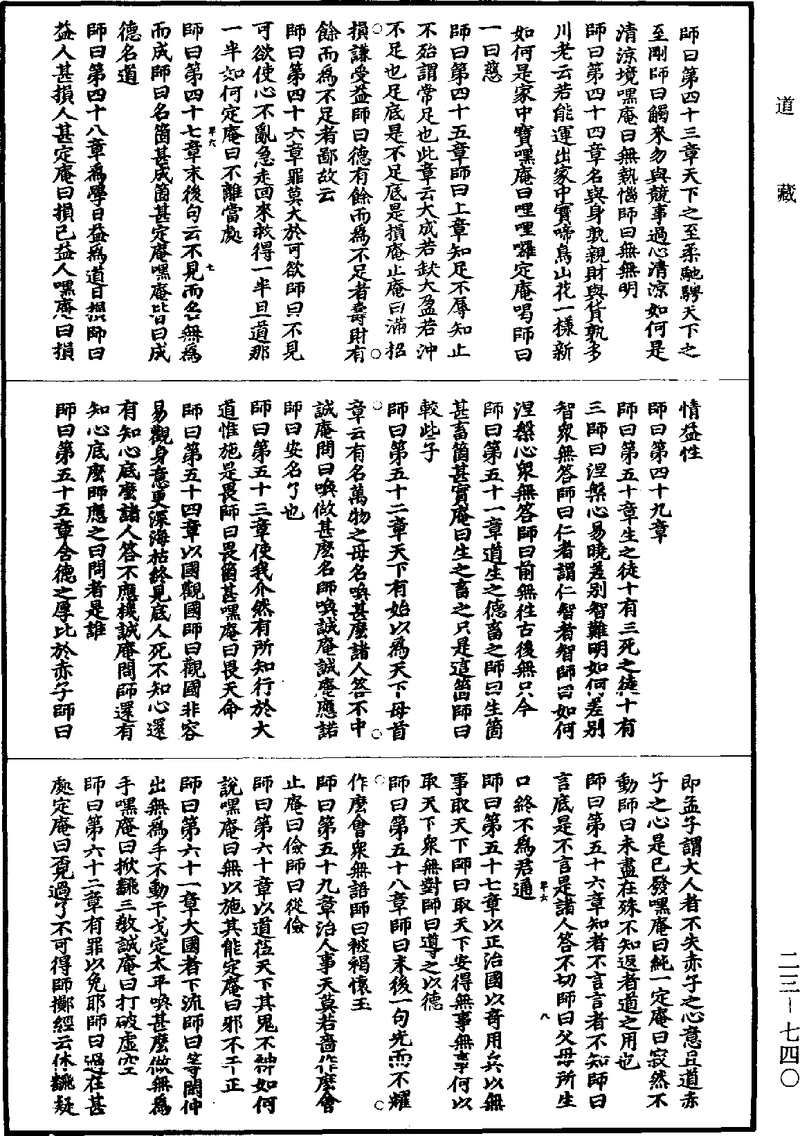 道藏
師曰第四十三章天下之至柔馳騁天下之
至剛師曰觸來勿與競事過心清涼如何是
清涼境嘿庵曰無熱惱師曰無無明
師曰第四十四章名與身孰親財與貨孰多
川老云若能運出家中寶啼鳥山花一樣新
如何是家中寶嘿庵曰哩哩囉定庵喝師曰
一曰慈
師曰第四十五章師曰上章知足不辱知止
不殆謂常足也此章云大成若缺大盈若沖
不足也足底是不足底是損庵止庵曰滿招
損謙受益師曰德有餘而為不足者壽財有
餘而為不足者鄙故云
師曰第四十六章罪莫大於可欲師曰不見
可欲使心不亂急走回來救得一半且道那
一半如何定庵曰不離當處
師曰第四十七章末後句云不見而名無為
而成師曰名箇甚成箇甚定庵嘿庵皆曰成
德名道
師曰第四十八章為學日益為道日損師曰
益人甚損人甚定庵曰損己益人嘿庵曰損
情益性
師曰第四十九章
師曰第五十章生之徒十有三死之徒十有
三師曰涅槃心易曉差別智難明如何差別
智眾無答師曰仁者謂仁智者智師曰如何
涅槃心眾無答師曰前無往古後無只今
師曰第五十一章道生之德畜之師曰生箇
甚畜箇甚實庵曰生之畜之只是這箇師曰
較些子
師曰第五十二章天下有始以為天下母首
章云有名萬物之母名喚甚麼諸人答不中
誠庵問曰喚做甚麼名師喚誠庵誠庵應諾
師曰安名了也
師曰第五十三章使我介然有所知行於大
道惟施是畏師曰畏箇甚嘿庵曰畏天命
師曰第五十四章以國觀國師曰觀國非容
易觀身意更深海枯終見底人死不知心還
有知心底麼諸人答不應機誠庵問師還有
知心底麼師應之曰問者是誰
師曰第五十五章含德之厚比於赤子師曰
即孟子謂大人者不失赤子之心意且道赤
子之心是已發嘿庵曰純一定庵曰寂然不
動師曰未盡在殊不知返者道之用也
師曰第五十六章知者不言言者不知師曰
言底是不言是諸人答不切師曰父母所生
口終不為君通
師曰第五十七章以正治國以奇用兵以無
事取天下師曰取天下安得無事無事何以
取天下眾無對師曰導之以德
師曰第五十八章師曰末後一句光而不耀
作麼會眾無語師曰被褐懷玉
師曰第五十九章治人事天莫若嗇作麼會
止庵曰儉師曰從儉
師曰第六十章以道莅天下其鬼不神如何
說嘿庵曰無以施其能定庵曰邪不干正
師曰第六十一章大國者下流師曰等閑伸
出無為手不動干戈定太平喚甚麼做無為
手嘿庵曰掀翻三教誠庵曰打破虛空
師曰第六十二章有罪以免耶師曰過在甚
處定庵曰覓過了不可得師擲經云休翻疑
二三—七四〇